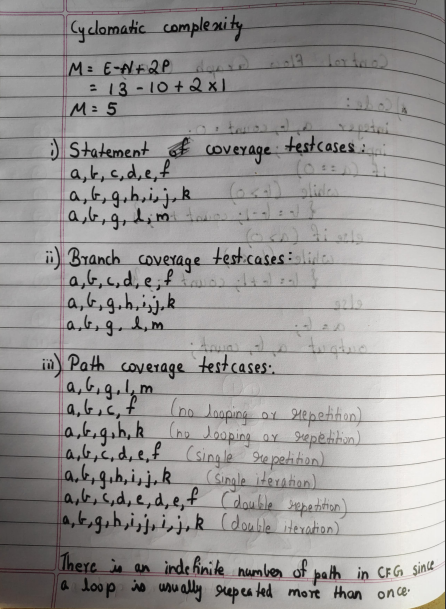 Cyclomatic complexity
M = E-N+2P
= 13 - 10 + 2 x 1
M = 5
i) Statement of coverage testcases:
a, b, c, d, e, f
a, b, g, h, i, j, k
a, b, g, l, m
ii) Branch coverage testcases:
a, b, c, d, e, f
a, b, g, h, i, j, k
a, b, g, l, m
iii) Path coverage testcases:
a, b, g, l, m
a, b, c, f (no looping or repetition)
a, b, g, h, k (no looping or repetition)
a, b, c, d, e, f (single repetition)
a, b, g, h, i, j, k (single iteration)
a, b, c, d, e, d, e, f (double repetition)
a, b, g, h, i, j, i, j, k (double iteration)
There is an indefinite number of path in CFG since
a loop is usually repeated more than once.